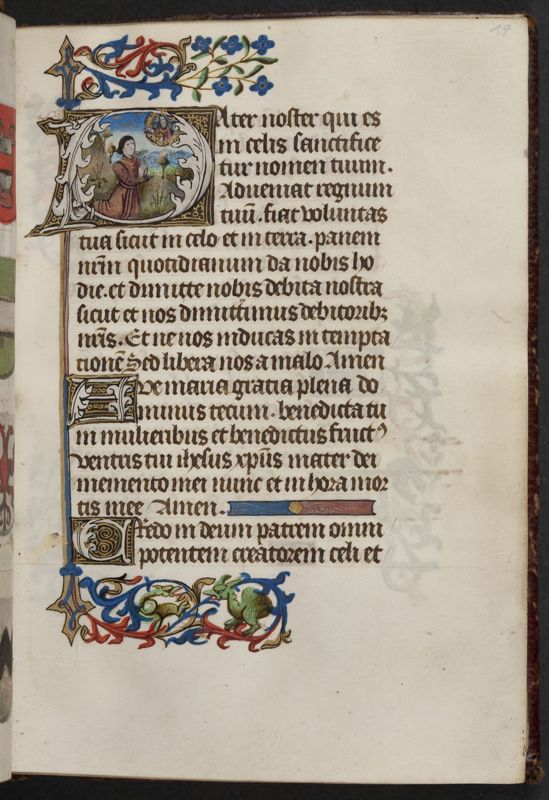 17
Pater noster qui es
in celis sanctifice
tur nomen tuum.
Adueniat regnum
tuū. fiat voluntas
tua sicut in celo et in terra. panem
nr̄m quotidianum da nobis ho
die. et dimitte nobis debita nostra
sicut et nos dimittimus debitoribꝫ
nr̄is. Et ne nos inducas in tempta
tionē Sed libera nos a malo. Amen
Ave maria gracia plena do
minus tecum. benedicta tu
in mulieribus et benedictus fructꝰ
ventris tui ihesus xp̄us mater dei
memento mei nunc et in hora mor
tis mee Amen.
Credo in deum patrem omni
potentem creatorem celi et